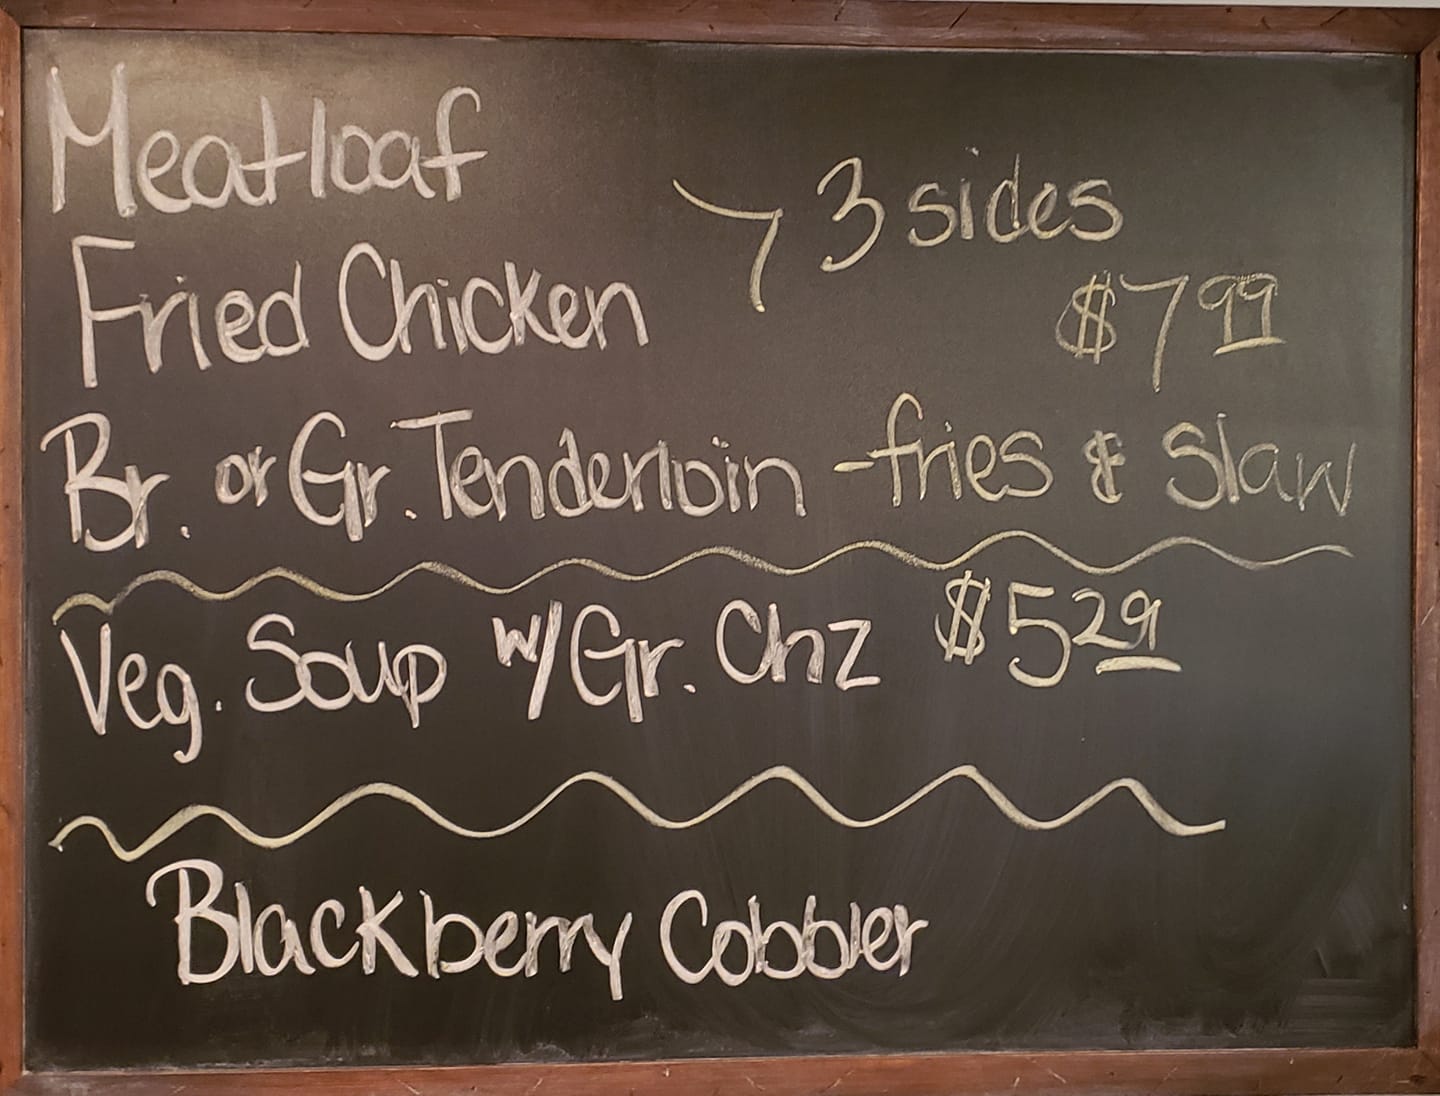 Meatloaf
Fried Chicken
3 sides
$7.99
Br. or Gr. Tenderloin - fries & Slaw
Veg. Soup w/ Gr. Chz $5.29
Blackberry Cobbler